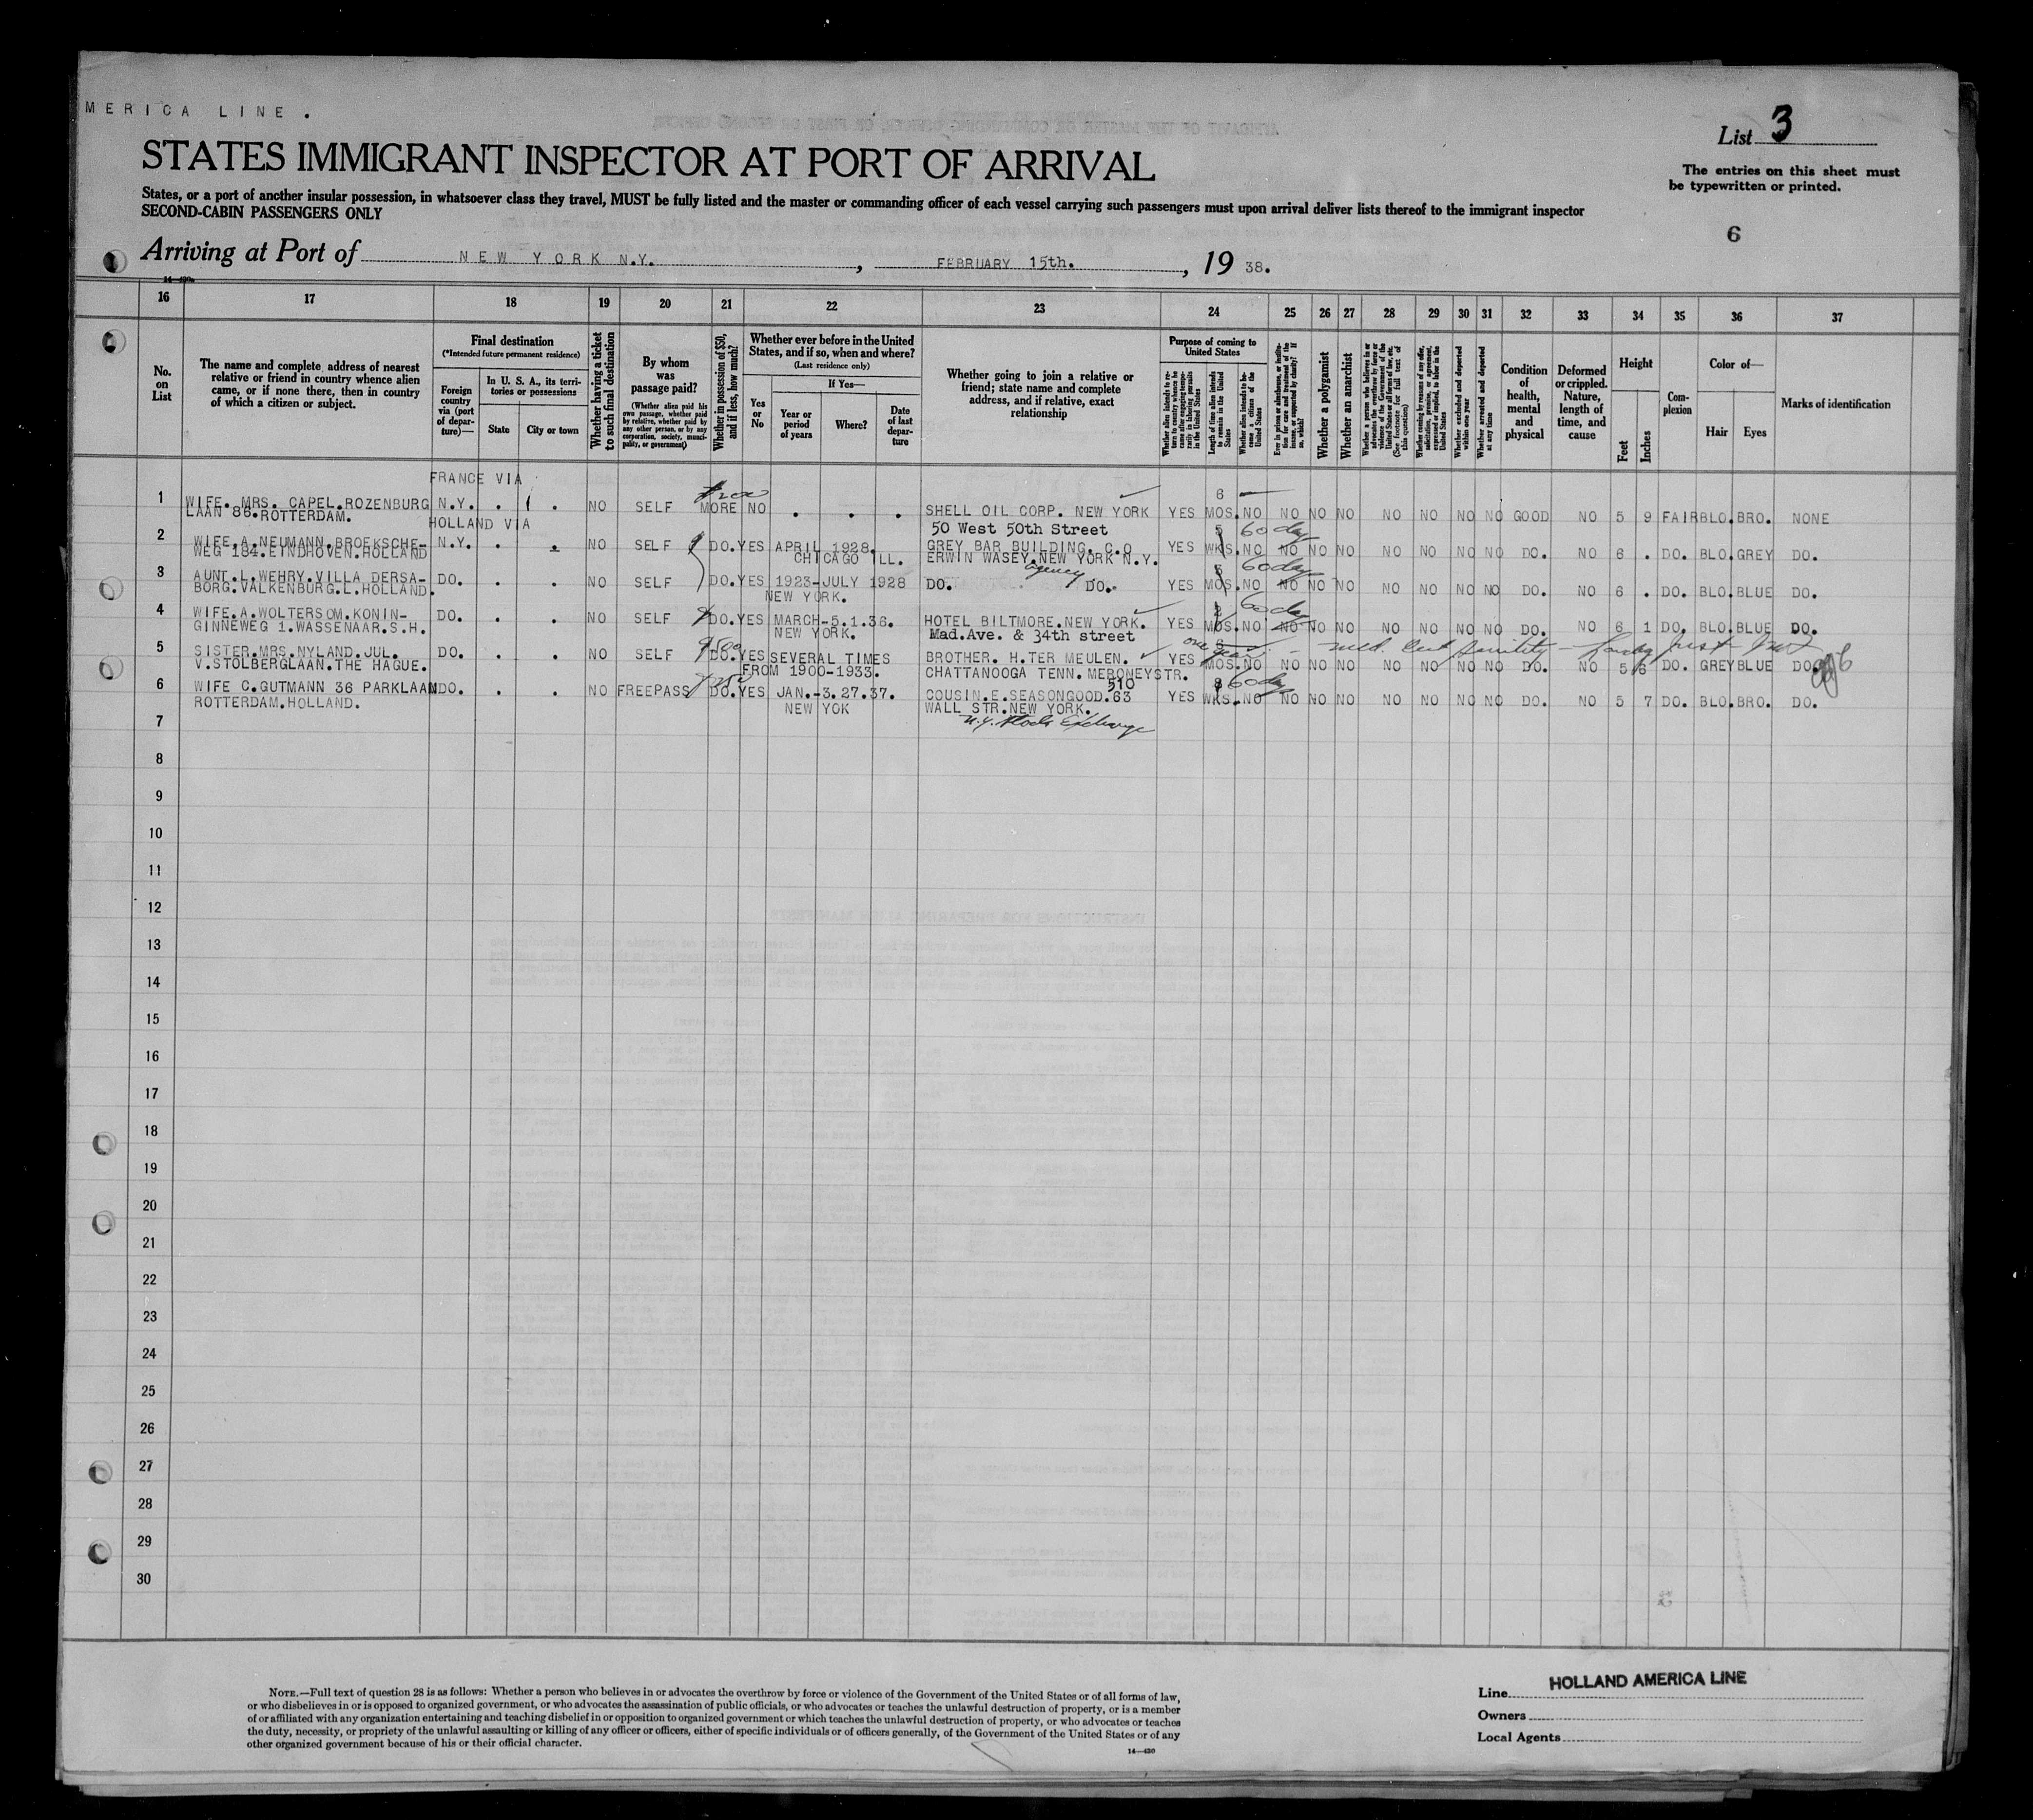 MERICA LINE.
List 3
STATES IMMIGRANT INSPECTOR AT PORT OF ARRIVAL
The entries on this sheet must
be typewritten or printed.
States, or a port of another insular possession, in whatsoever class they travel, MUST be fully listed and the master or commanding officer of each vessel carrying such passengers must upon arrival deliver lists thereof to the immigrant inspector
SECOND-CABIN PASSENGERS ONLY
6
Arriving at Port of NEW YORK N.Y. , FEBRUARY 15th. , 19 38.
16 17 18 19 20 21 22 23 24 25 26 27 28 29 30 31 32 33 34 35 36 37
No. on List
The name and complete address of nearest relative or friend in country whence alien came, or if none there, then in country of which a citizen or subject.
Final destination
(*Intended future permanent residence)
Foreign country via (port of departure)—
In U. S. A., its territories or possessions
State
City or town
Whether having a ticket to such final destination
By whom was passage paid?
(Whether alien paid his own passage, whether paid by relative, whether paid by any other person, or by any corporation, society, municipality, or government)
Whether in possession of $50, and if less, how much?
Whether ever before in the United States, and if so, when and where?
(Last residence only)
If Yes—
Yes or No
Year or period of years
Where?
Date of last departure
Whether going to join a relative or friend; state name and complete address, and if relative, exact relationship
Purpose of coming to United States
Length of time alien intends to remain in the United States
Whether alien intends to become a citizen of the United States
Whether a polygamist
Whether an anarchist
Whether excluded and deported within one year
Whether arrested and deported at any time
Condition of health, mental and physical
Deformed or crippled. Nature, length of time, and cause
Height
Feet
Inches
Complexion
Color of—
Hair
Eyes
Marks of identification
FRANCE VIA
1 WIFE. MRS. CAPEL.ROZENBURG N.Y. . . NO SELF MORE NO . . . SHELL OIL CORP. NEW YORK YES 6 MOS. NO NO NO NO NO NO NO NO GOOD NO 5 9 FAIR BLO. BRO. NONE
LAAN 86.ROTTERDAM.
50 West 50th Street
HOLLAND VIA
2 WIFE.A.NEUMANN.BROEKSCHE- N.Y. . . NO SELF DO. YES APRIL 1928. GREY BAR BUILDING. C.O YES WKS. 60 day NO NO NO NO NO NO NO NO DO. NO 6 . DO. BLO. GREY DO.
WEG 184.EINDHOVEN.HOLLAND CHICAGO ILL. ERWIN WASEY.NEW YORK N.Y.
agency
3 AUNT.L.WEHRY.VILLA DERSA- DO. . . NO SELF DO. YES 1923-JULY 1928 DO. DO. YES MOS. 60 day NO NO NO NO NO NO NO NO DO. NO 6 . DO. BLO. BLUE DO.
BORG.VALKENBURG.L.HOLLAND. NEW YORK.
4 WIFE.A.WOLTERSOM.KONIN- DO. . . NO SELF DO. YES MARCH-5.1.36. HOTEL BILTMORE.NEW YORK. YES MOS. 60 day NO NO NO NO NO NO NO NO DO. NO 6 1 DO. BLO. BLUE DO.
GINNEWEG 1.WASSENAAR.S.H. NEW YORK. Mad.Ave. & 34th street
5 SISTER.MRS.NYLAND.JUL. DO. . . NO SELF DO. YES SEVERAL TIMES BROTHER. H.TER MEULEN. YES one year MOS. NO NO NO NO NO NO NO NO DO. NO 5 6 DO. GREY BLUE DO.
V.STOLBERGLAAN.THE HAGUE. FROM 1900-1933. CHATTANOOGA TENN. MERONEYSTR.
510
6 WIFE C.GUTMANN 36 PARKLAAN DO. . . NO FREEPASS DO. YES JAN.-3.27.37. COUSIN.E.SEASONGOOD.63 YES 8 WKS. 60 day NO NO NO NO NO NO NO NO DO. NO 5 7 DO. BLO. BRO. DO.
ROTTERDAM.HOLLAND. NEW YOK WALL STR.NEW YORK.
N.Y. Stock Exchange
7
8
9
10
11
12
13
14
15
16
17
18
19
20
21
22
23
24
25
26
27
28
29
30
NOTE.—Full text of question 28 is as follows: Whether a person who believes in or advocates the overthrow by force or violence of the Government of the United States or of all forms of law,
or who disbelieves in or is opposed to organized government, or who advocates the assassination of public officials, or who advocates or teaches the unlawful destruction of property, or is a member
of or affiliated with any organization entertaining and teaching disbelief in or opposition to organized government or which teaches the unlawful destruction of property, or who advocates or teaches
the duty, necessity, or propriety of the unlawful assaulting or killing of any officer or officers, either of specific individuals or of officers generally, of the Government of the United States or of any
other organized government because of his or their official character.
14—430
Line HOLLAND AMERICA LINE
Owners
Local Agents